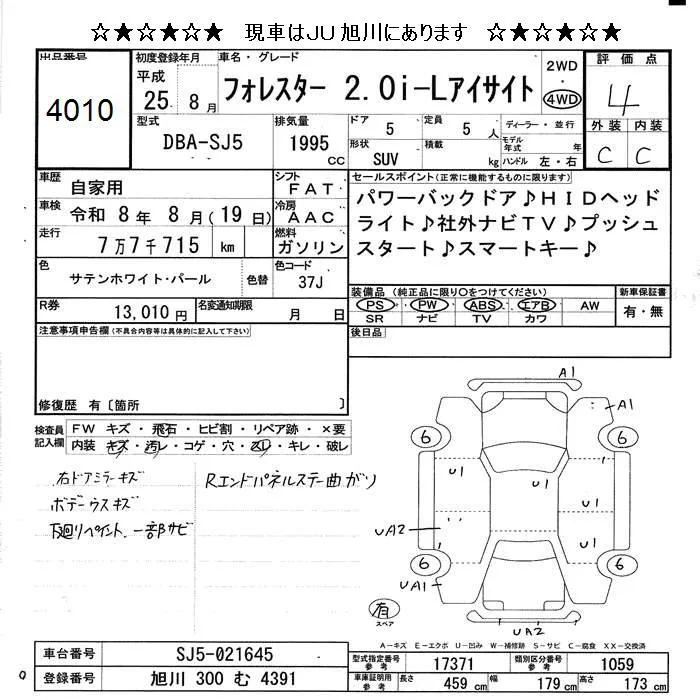 ☆★☆★☆★ 現車はJU旭川にあります ☆★☆★☆★
出品番号
4010
初度登録年月
平成
25. 8 月
車名・グレード
フォレスター 2.0i-Lアイサイト
2WD
・
4WD
評価点
4
外装 内装
C C
型式
DBA-SJ5
排気量
1995
CC
ドア
5
定員
5 人
ディーラー・並行
形状
SUV
積載
kg
モデル年式 年
ハンドル 左・右
車歴
自家用
シフト
FAT
車検
令和 8年 8月(19日)
冷房
AAC
走行
7万7千715 km
燃料
ガソリン
セールスポイント(正常に機能するものに限ります)
パワーバックドア♪HIDヘッド
ライト♪社外ナビTV♪プッシュ
スタート♪スマートキー♪
色
サテンホワイト・パール
色替
色コード
37J
装備品 (純正品に限り○をつけてください)
新車保証書
PS PW ABS エアB AW
有・無
SR ナビ TV カワ
R券
13,010円
名変通知期限
月 日
後日品
注意事項申告欄(不具合内容等は具体的に記入して下さい)
修復歴 有〔箇所 〕
検査員記入欄
FW キズ・飛石・ヒビ割・リペア跡・×要
内装 キズ・汚レ・コゲ・穴・スレ・キレ・破レ
右ドアミラーキズ
ボデーウスキズ
下廻りペイント、一部サビ
Rエンドパネルステー曲がり
A1
A1
6
6
U1
U1
U1
U1
UA2
6
6
UA1
UA2
有
スペア
A-キズ E-エクボ U-凹み W-補修跡 S-サビ C-腐食 XX-交換済
車台番号
SJ5-021645
登録番号
旭川 300 む 4391
型式指定番号
参考
17371
類別区分番号
参考
1059
車体証明用
参考
長さ
459 cm
幅
179 cm
高さ
173 cm